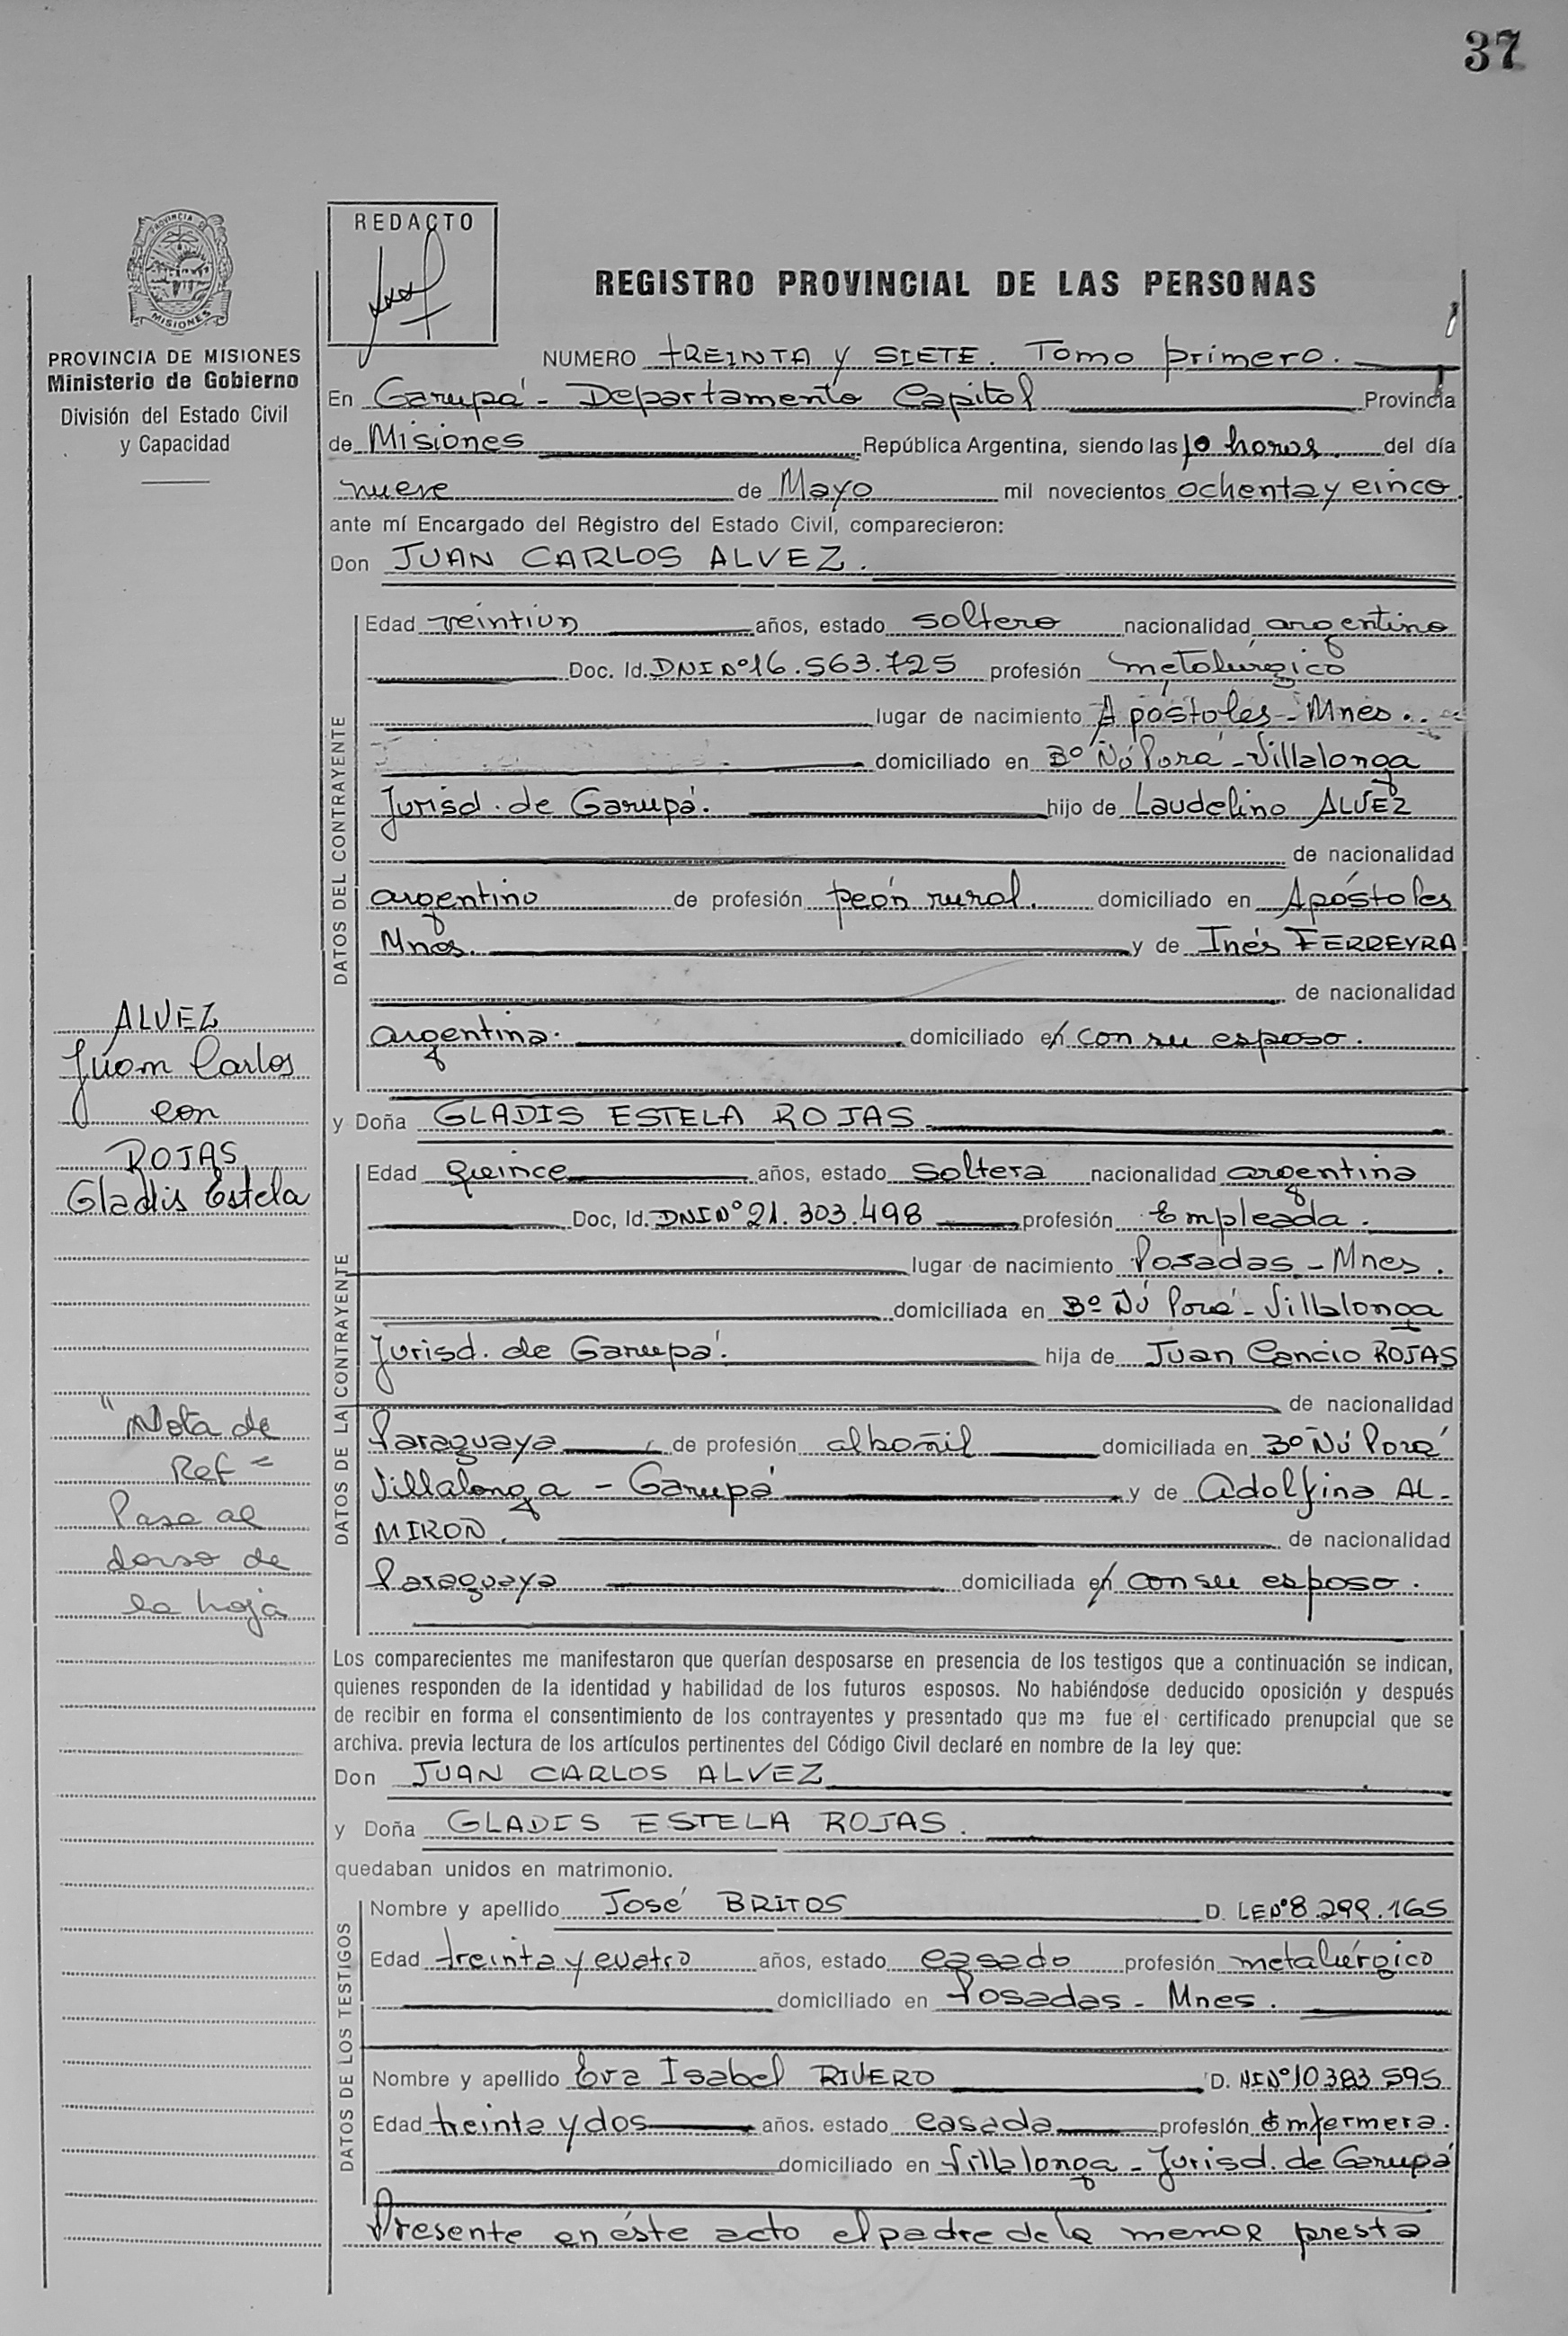 37
PROVINCIA DE
MISIONES
PROVINCIA DE MISIONES
Ministerio de Gobierno
División del Estado Civil
y Capacidad
REDACTO
REGISTRO PROVINCIAL DE LAS PERSONAS
NUMERO TREINTA Y SIETE. Tomo primero.
En Garupá - Departamento Capital Provincia
de Misiones República Argentina, siendo las 10 horas. del día
nueve de Mayo mil novecientos ochenta y cinco.
ante mí Encargado del Registro del Estado Civil, comparecieron:
Don JUAN CARLOS ALVEZ.
DATOS DEL CONTRAYENTE
Edad veintiun años, estado soltero nacionalidad argentino
Doc. Id. DNI Nº 16.563.725 profesión metalúrgico
lugar de nacimiento Apóstoles - Mnes.
domiciliado en Bº Ñú Porá - Villalonga
Jurisd. de Garupá. hijo de Laudelino ALVEZ
de nacionalidad
argentino de profesión peón rural. domiciliado en Apóstoles
Mnes. y de Inés FERREYRA
de nacionalidad
argentina. domiciliado en con su esposo.
y Doña GLADIS ESTELA ROJAS.
DATOS DE LA CONTRAYENTE
Edad quince años, estado soltera nacionalidad argentina
Doc, Id. DNI Nº 21.303.498 profesión Empleada.
lugar de nacimiento Posadas - Mnes.
domiciliada en Bº Ñú Porá - Villalonga
Jurisd. de Garupá. hija de Juan Cancio ROJAS
de nacionalidad
Paraguaya de profesión albañil domiciliada en Bº Ñú Porá
Villalonga - Garupá y de Adolfina AL-
MIRON. de nacionalidad
Paraguaya domiciliada en con su esposo.
Los comparecientes me manifestaron que querían desposarse en presencia de los testigos que a continuación se indican,
quienes responden de la identidad y habilidad de los futuros esposos. No habiéndose deducido oposición y después
de recibir en forma el consentimiento de los contrayentes y presentado que me fue el certificado prenupcial que se
archiva. previa lectura de los artículos pertinentes del Código Civil declaré en nombre de la ley que:
Don JUAN CARLOS ALVEZ
y Doña GLADIS ESTELA ROJAS.
quedaban unidos en matrimonio.
DATOS DE LOS TESTIGOS
Nombre y apellido José BRITOS D. LE Nº 8.299.165
Edad treinta y cuatro años, estado casado profesión metalúrgico
domiciliado en Posadas - Mnes.
Nombre y apellido Eva Isabel RIVERO D. NI Nº 10.383.595
Edad treinta y dos años. estado casada profesión Emfermera.
domiciliado en Villalonga - Jurisd. de Garupá
Presente en éste acto el padre de la menor presta
ALVEZ
Juan Carlos
con
ROJAS
Gladis Estela
"Nota de
Ref =
Pasa al
dorso de
la hoja